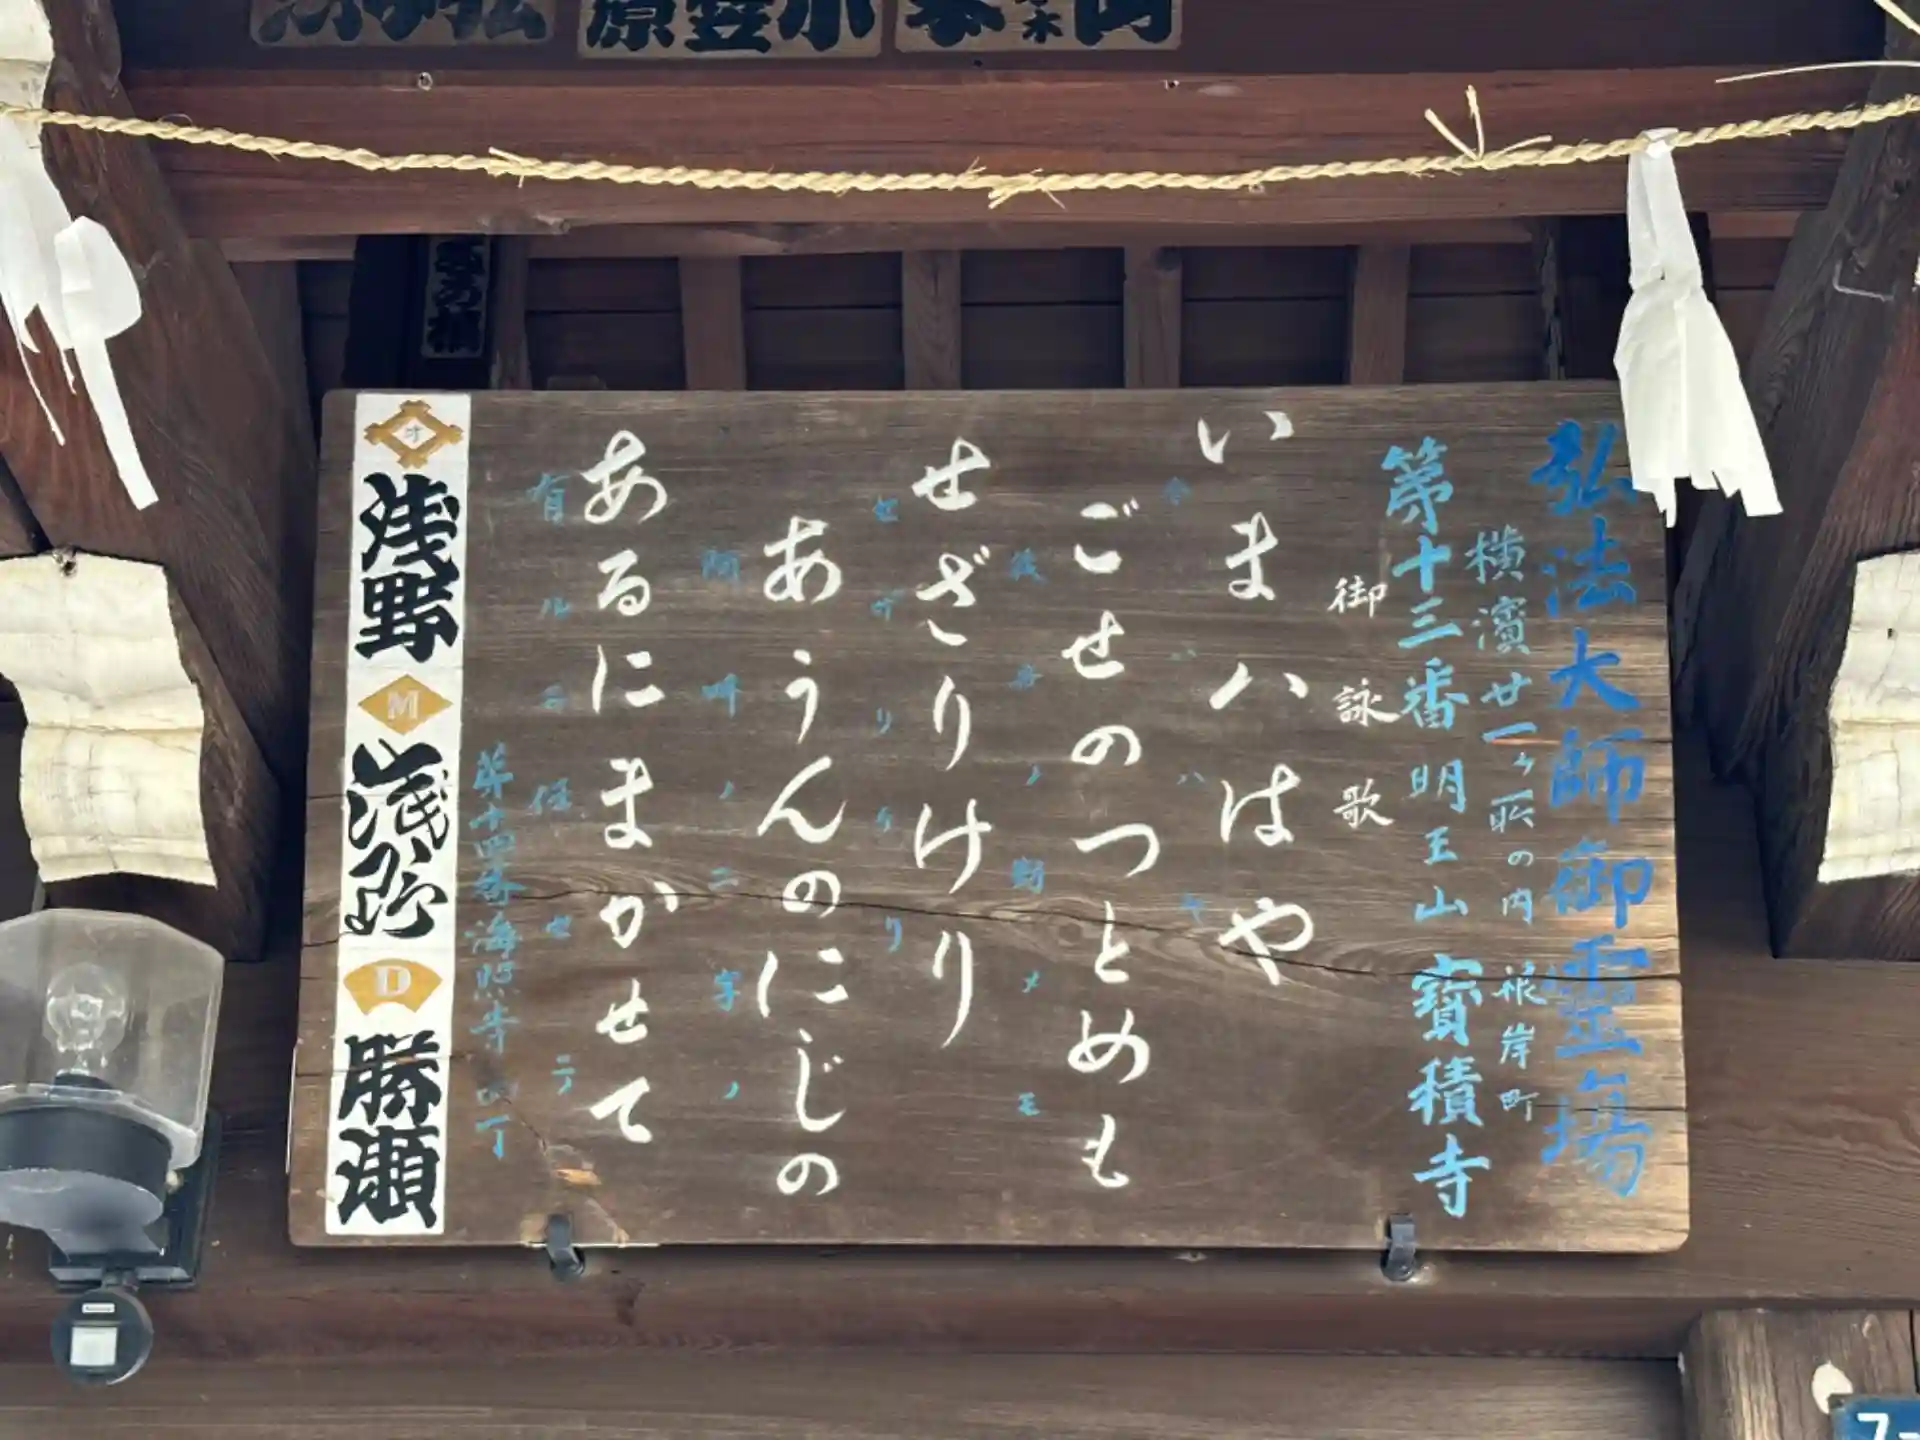 小笠原
弘法大師御霊場
横濱廿一ヶ所の内 根岸町
第十三番 明王山 寳積寺
御詠歌
いまハはや
今ハハヤ
ごせのつとめも
後世ノ勤メモ
せざりけり
セザリケリ
あうんのにじの
阿吽ノ二字ノ
あるにまかせて
有ルニ任セテ
第十四番海照寺
浅野
M
D
勝瀬